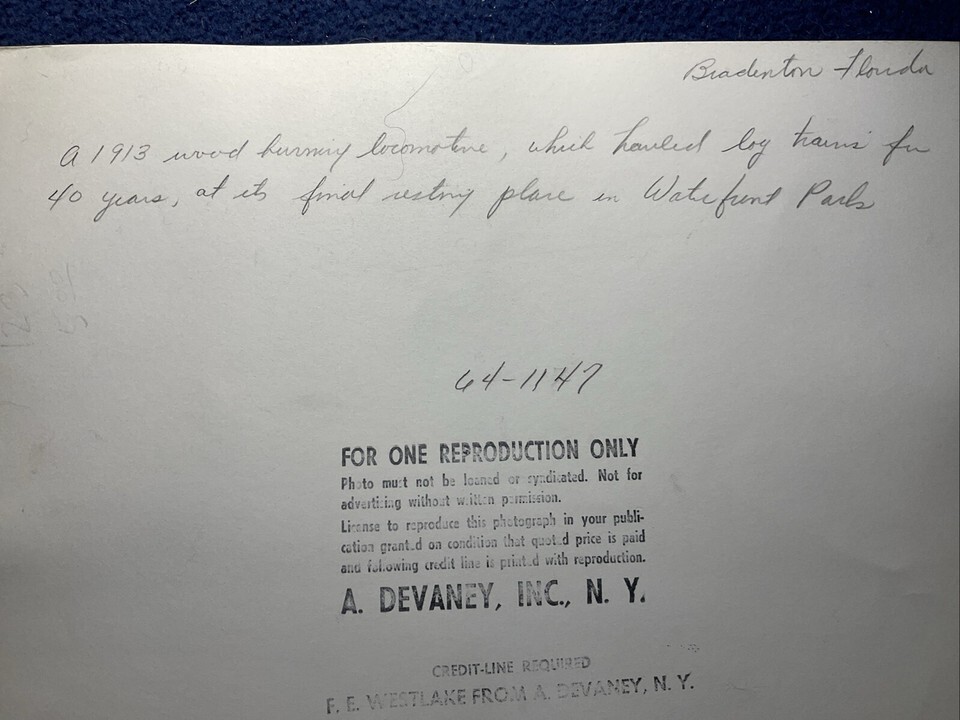 Bradenton Florida
A 1913 wood burning locomotive, which hauled log trains for
40 years, at its final resting place in Waterfront Park
64-1147
FOR ONE REPRODUCTION ONLY
Photo must not be loaned or syndicated. Not for
advertising without written permission.
License to reproduce this photograph in your publi-
cation granted on condition that quoted price is paid
and following credit line is printed with reproduction.
A. DEVANEY, INC., N. Y.
CREDIT-LINE REQUIRED
F. E. WESTLAKE FROM A. DEVANEY, N. Y.